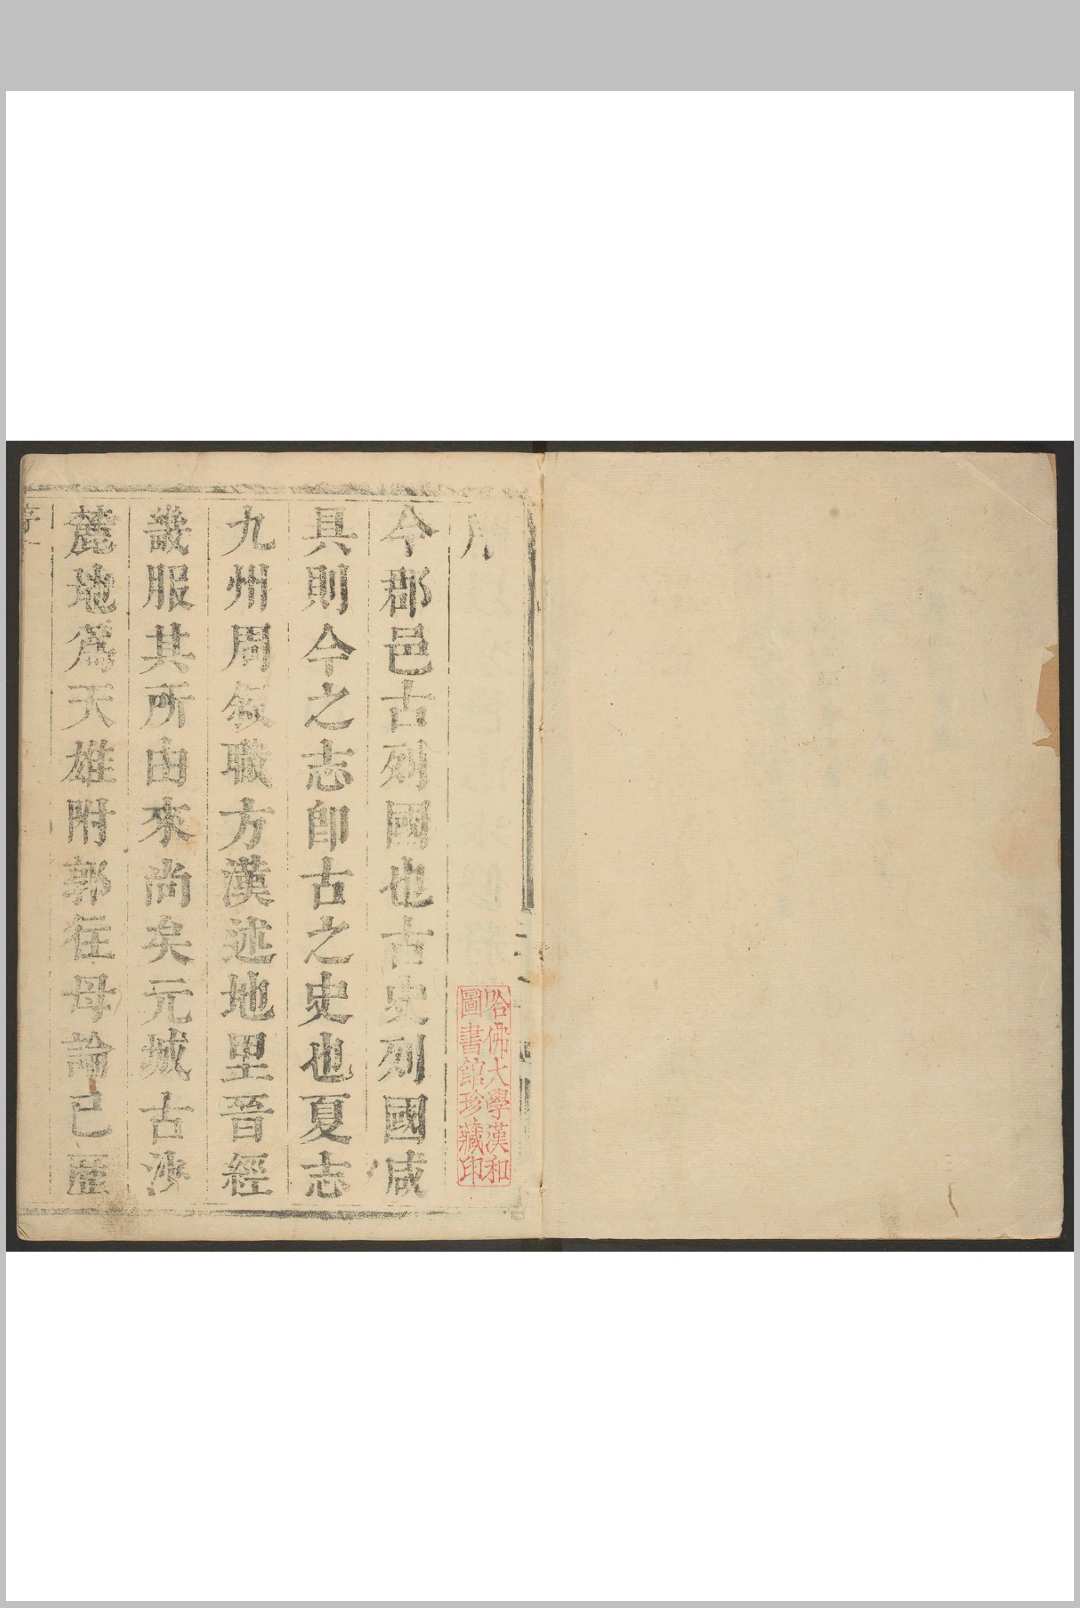 序
今郡邑古列國也古史列國咸
具則今之志卽古之史也夏志
九州周叙職方漢述地里晉經
畿服其所由來尚矣元城古沙
麓地爲天雄附郭徃毋論已歷
哈佛大學漢和
圖書館珍藏印
序